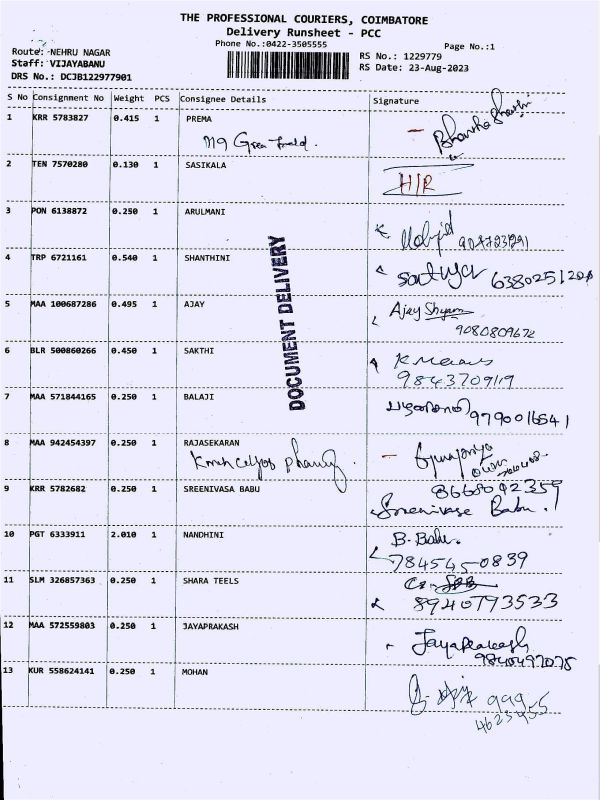 THE PROFESSIONAL COURIERS, COIMBATORE
Delivery Runsheet - PCC
Phone No.:0422-3505555
Page No.:1
Route: -NEHRU NAGAR
Staff: VIJAYABANU
DRS No.: DCJB122977901
RS No.: 1229779
RS Date: 23-Aug-2023
S No Consignment No Weight PCS Consignee Details Signature
1 KRR 5783827 0.415 1 PREMA
2 TEN 7570280 0.130 1 SASIKALA H/R
3 PON 6138872 0.250 1 ARULMANI
4 TRP 6721161 0.540 1 SHANTHINI Sathya
5 MAA 100687286 0.495 1 AJAY Ajay Shyam
9080809672
6 BLR 500860266 0.450 1 SAKTHI
9843709119
7 MAA 571844165 0.250 1 BALAJI 9790016541
8 MAA 942454397 0.250 1 RAJASEKARAN
9 KRR 5782682 0.250 1 SREENIVASA BABU 8668092359
Sreenivase Babu.
10 PGT 6333911 2.010 1 NANDHINI B. Babu.
7845450839
11 SLM 326857363 0.250 1 SHARA TEELS
8940793533
12 MAA 572559803 0.250 1 JAYAPRAKASH Jayaprakash
9840497075
13 KUR 558624141 0.250 1 MOHAN 999
4623955
DOCUMENT DELIVERY